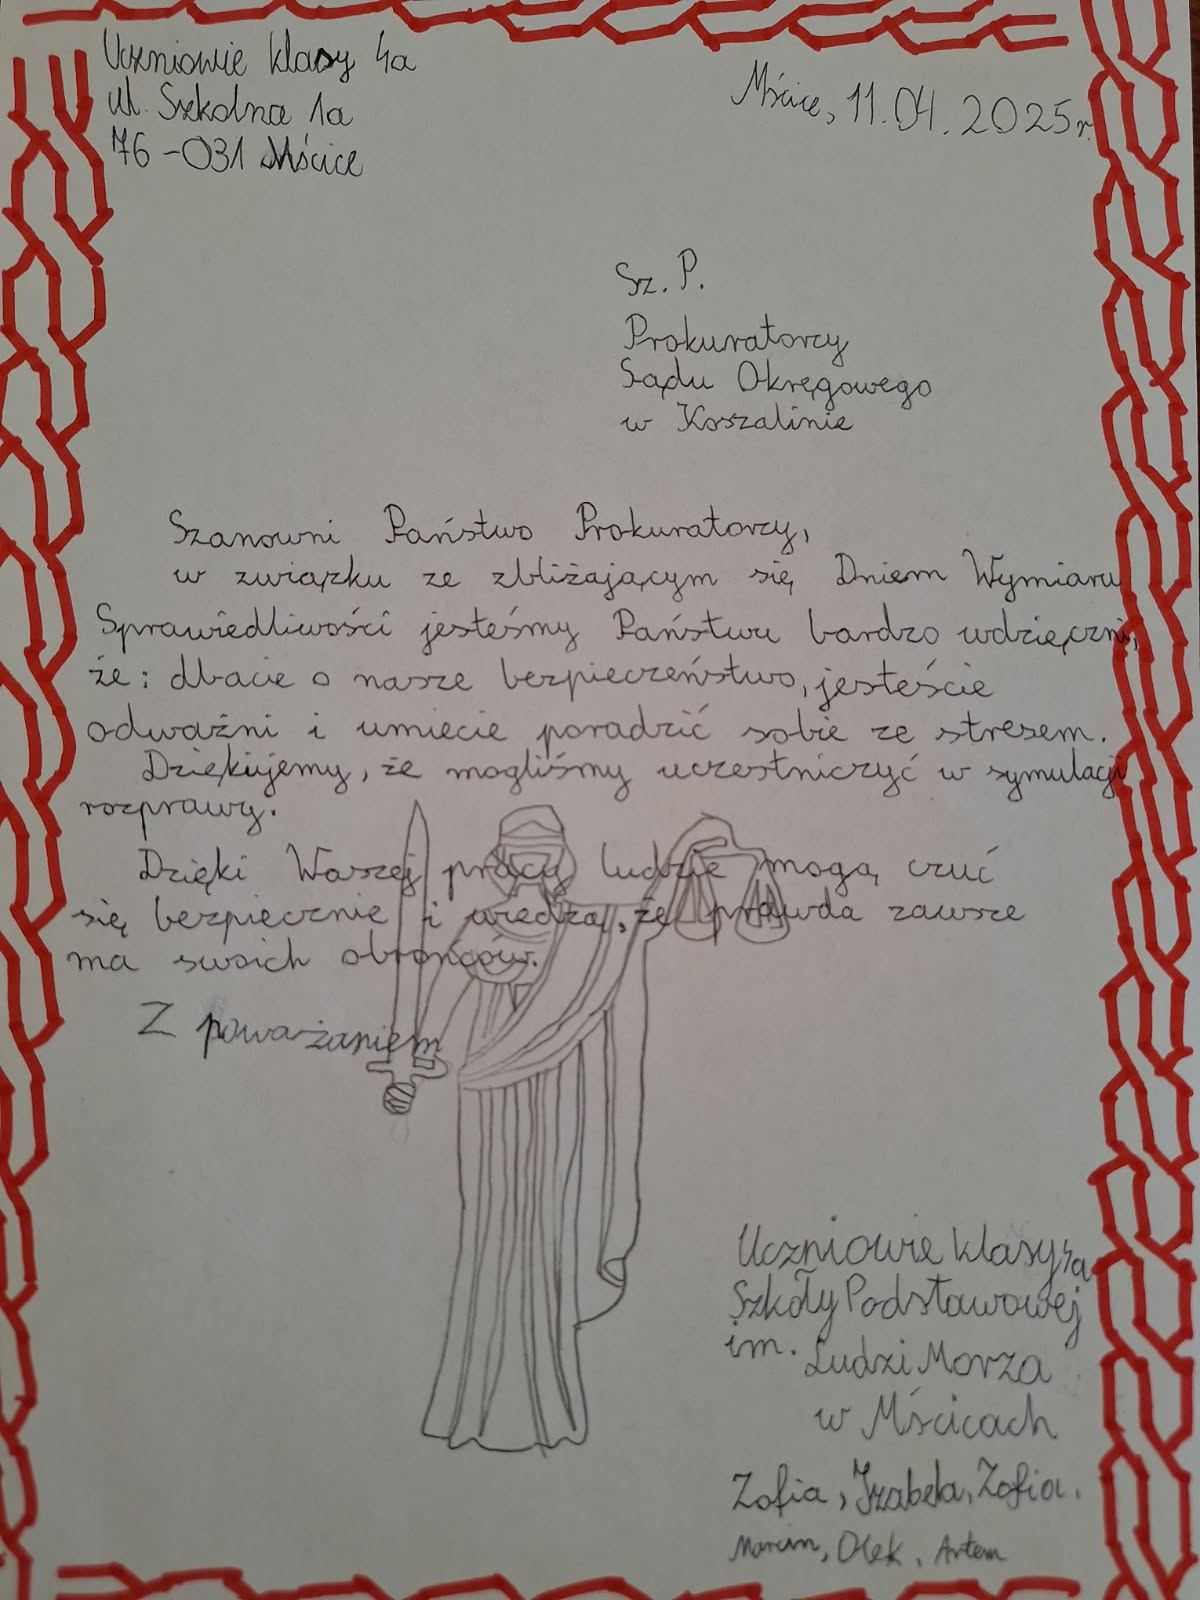 Uczniowie klasy 4a
ul. Szkolna 1a
76-031 Mścice
Mścice, 11.04.2025r.
Sz. P.
Prokuratorzy
Sądu Okręgowego
w Koszalinie
Szanowni Państwo Prokuratorzy,
w związku ze zbliżającym się Dniem Wymiaru
Sprawiedliwości jesteśmy Państwu bardzo wdzięczni,
że: dbacie o nasze bezpieczeństwo, jesteście
odważni i umiecie poradzić sobie ze stresem.
Dziękujemy, że mogliśmy uczestniczyć w symulacji
rozprawy.
Dzięki Waszej pracy ludzie mogą czuć
się bezpiecznie i wiedzą, że prawda zawsze
ma swoich obrońców.
Z poważaniem
Uczniowie klasy 4a
Szkoły Podstawowej
im. Ludzi Morza
w Mścicach
Zofia, Izabela, Zofia,
Marcin, Olek, Artem